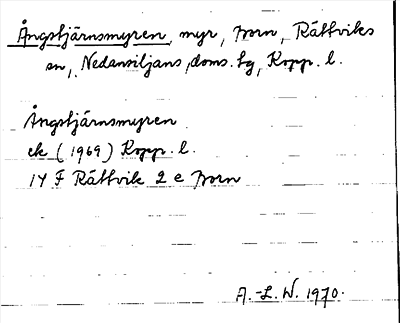 Ångstjärnsmyren, myr, Born, Rättviks
sn, Nedansiljans doms. tg, Kopp. l.
Ångstjärnsmyren
ek (1969) Kopp. l.
14 F Rättvik 2 e Born
A.-L. W. 1970.